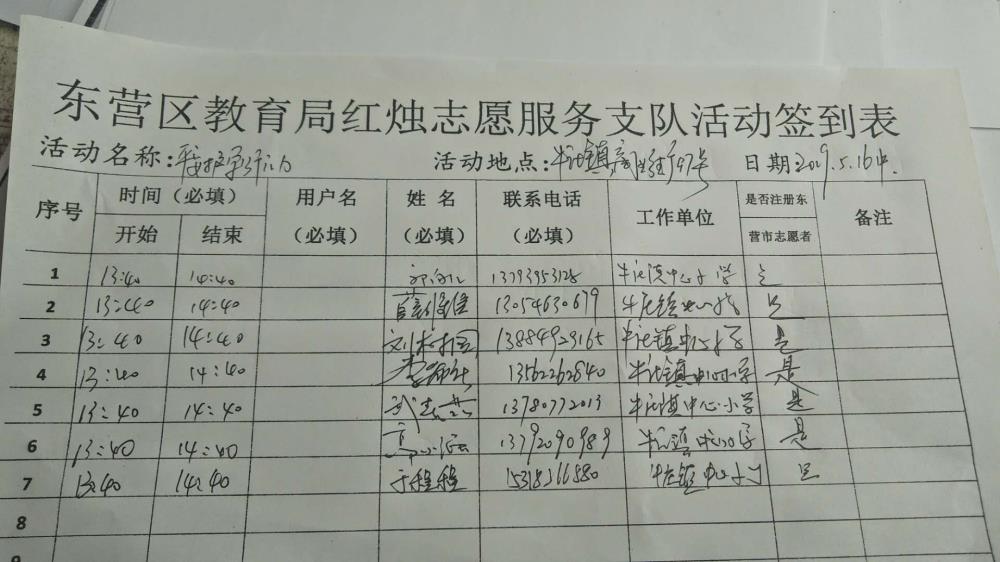 东营区教育局红烛志愿服务支队活动签到表
活动名称: 活动地点:牛庄镇 日期2019.5.16
序号 时间（必填） 用户名（必填） 姓名（必填） 联系电话（必填） 工作单位 是否注册东营市志愿者 备注
开始 结束
1 13:40 14:40 13793953128 牛庄镇中心小学 是
2 13:40 14:40 13054630679 牛庄镇中心小学 是
3 13:40 14:40 刘树国 13884929165 牛庄镇中心小学 是
4 13:40 14:40 13562262840 牛庄镇中心小学 是
5 13:40 14:40 13780772013 牛庄镇中心小学 是
6 13:40 14:40 13792090989 牛庄镇中心小学 是
7 13:40 14:40 于程程 牛庄镇中心小学 是
8
9